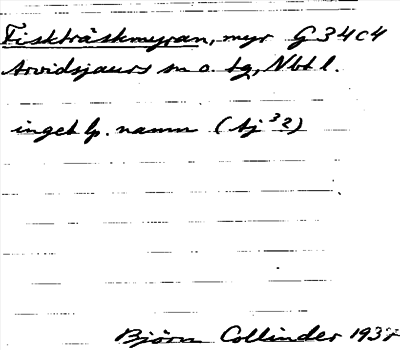 Fiskträskmyran, myr G 34 c 4
Arvidsjaurs sn o. tg, Nbtl.
inget lp. namn (Aj 32)
Björn Collinder 1937